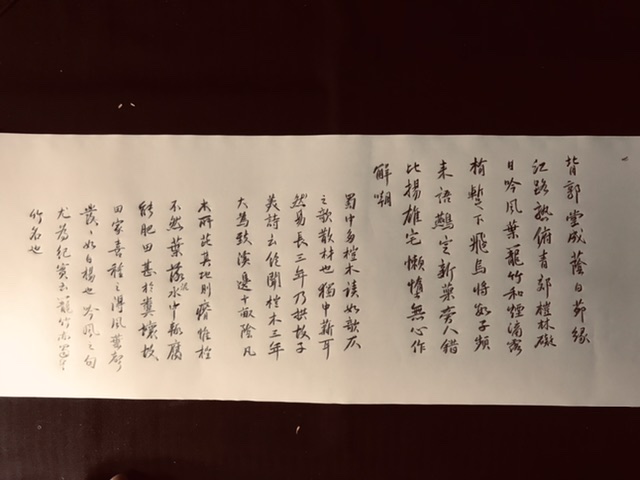 背郭堂成蔭白茆緣
江路熟俯青郊榿林礙
日吟風葉籠竹和煙滴露
梢暫下飛烏將數子頻
来語鷰定新巢旁人錯
比揚雄宅懶惰無心作
解嘲
蜀中多榿木讀如欹仄
之欹散材也獨中薪耳
然易長三年乃拱故子
美詩云飽聞榿木三年
大為致溪邊十畝陰凡
木所芘其地則瘠惟榿
不然葉落泥水中輒腐
能肥田甚於糞壤故
田家喜種之得風葉聲
發々如白楊也吟風之句
尤為紀實云籠竹亦蜀中
竹名也